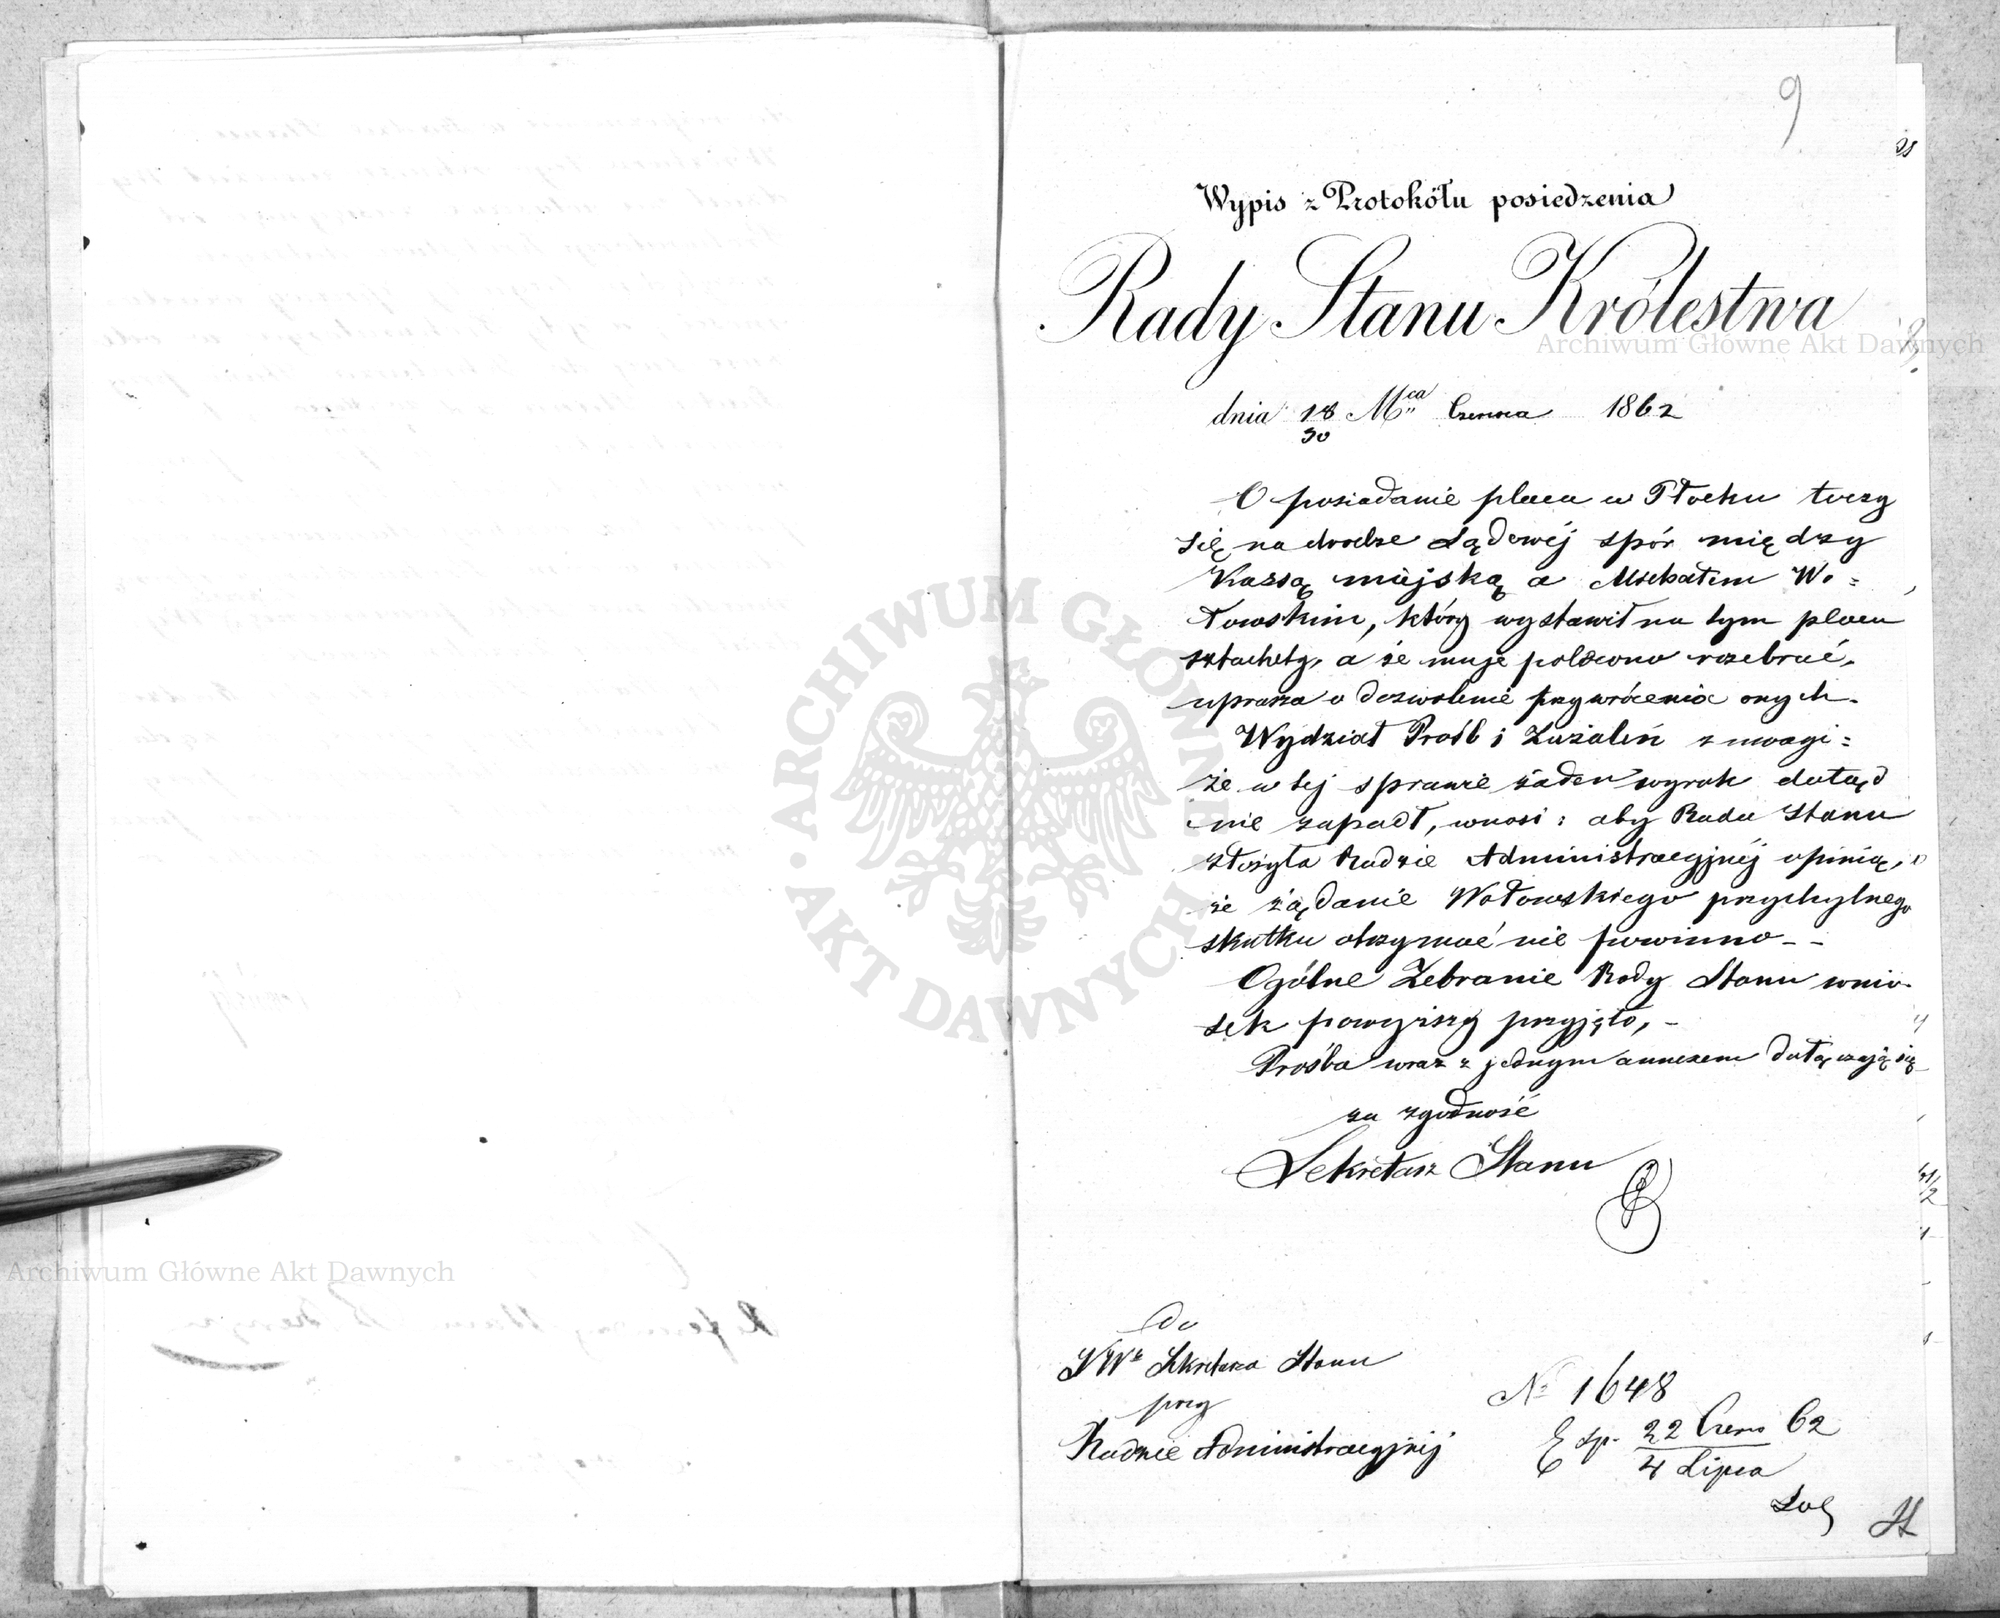 9
Wypis z Protokółu posiedzenia
Rady Stanu Królestwa
dnia 18/30 Mca Czerwca 1862
O posiadanie placu w Płocku toczy
się na drodze Sądowéj spór między
Kassą miejską a Michałem Wo=
łowskim, który wystawił na tym placu
sztachety, a że mu je polecono rozebrać,
uprasza o dozwolenie przywrócenia onych.
Wydział Próśb i Zażaleń z uwagi:
że w tej sprawie żaden wyrok dotąd
nie zapadł, wnosi: aby Rada Stanu
złożyła Radzie Administracyjnéj opinią,
że żądanie Wołowskiego przychylnego
skutku otrzymać nie powinno. -
Ogólne Zebranie Rady Stanu wnio-
sek powyższy przyjęło, -
Prośba wraz z jednym annexem dołączają się
za zgodność
Sekretarz Stanu
Do
JWo Sekretarza Stanu
przy
Radzie Administracyjnéj
No 1648
Exp. 22 Czerw 62
4 Lipca
Archiwum Główne Akt Dawnych
Archiwum Główne Akt Dawnych
ARCHIWUM GŁÓWNE AKT DAWNYCH